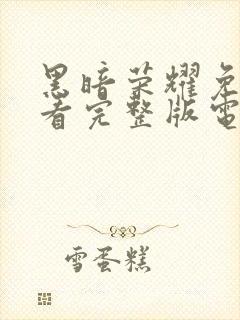 黑暗荣耀免
看完整版電
雪蛋糕